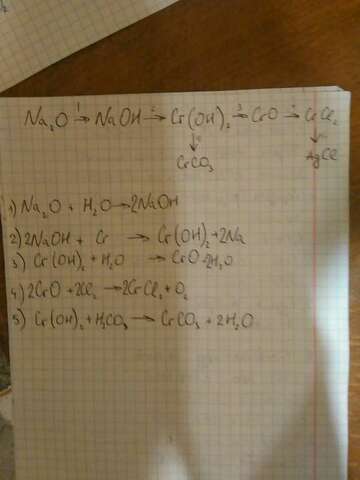 Na₂O →¹ NaOH →² Cr(OH)₂ →³ CrO →⁴ CrCl₂
↓ ↓
CrCO₃ AgCl
1) Na₂O + H₂O → 2NaOH
2) 2NaOH + Cr → Cr(OH)₂ + 2Na
3) Cr(OH)₂ + H₂O → CrO + 2H₂O
4) 2CrO + 2Cl₂ → 2CrCl₂ + O₂
5) Cr(OH)₂ + H₂CO₃ → CrCO₃ + 2H₂O